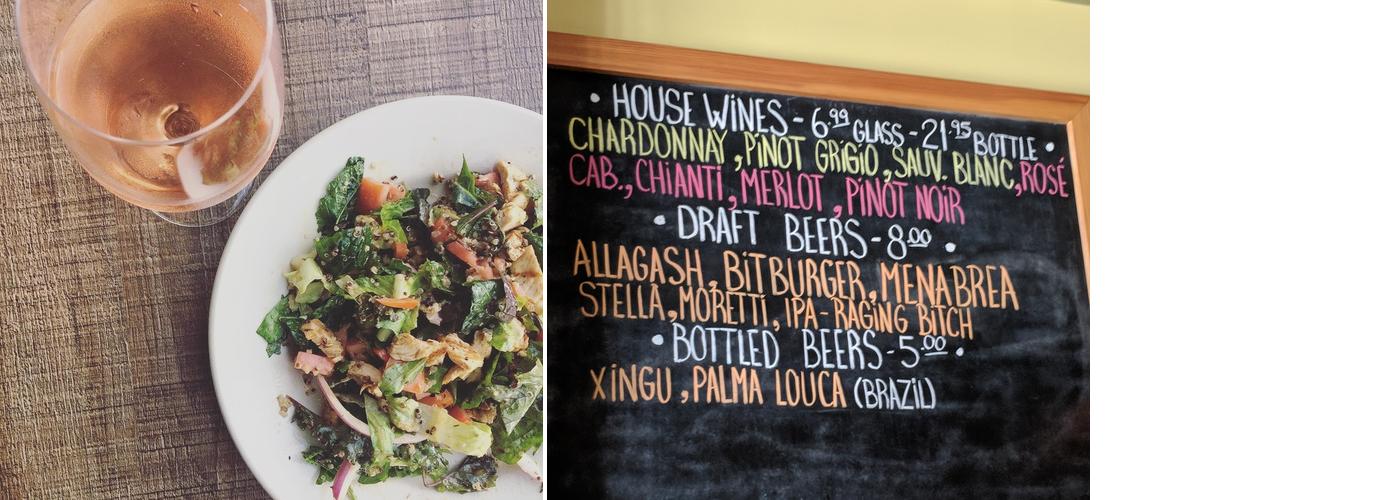 • HOUSE WiNES - 6.99 GLASS - 21.95 BOTTLE •
CHARDONNAY, PiNOT GRiGiO, SAUV. BLANC, ROSÉ
CAB., CHiANTi, MERLOT, PiNOT NOiR
• DRAFT BEERS - 8.00 •
ALLAGASH, BiTBURGER, MENABREA
STELLA, MORETTi, IPA - RAGiNG BiTCH
• BOTTLED BEERS - 5.00 •
XiNGU, PALMA LOUCA (BRAZiL)